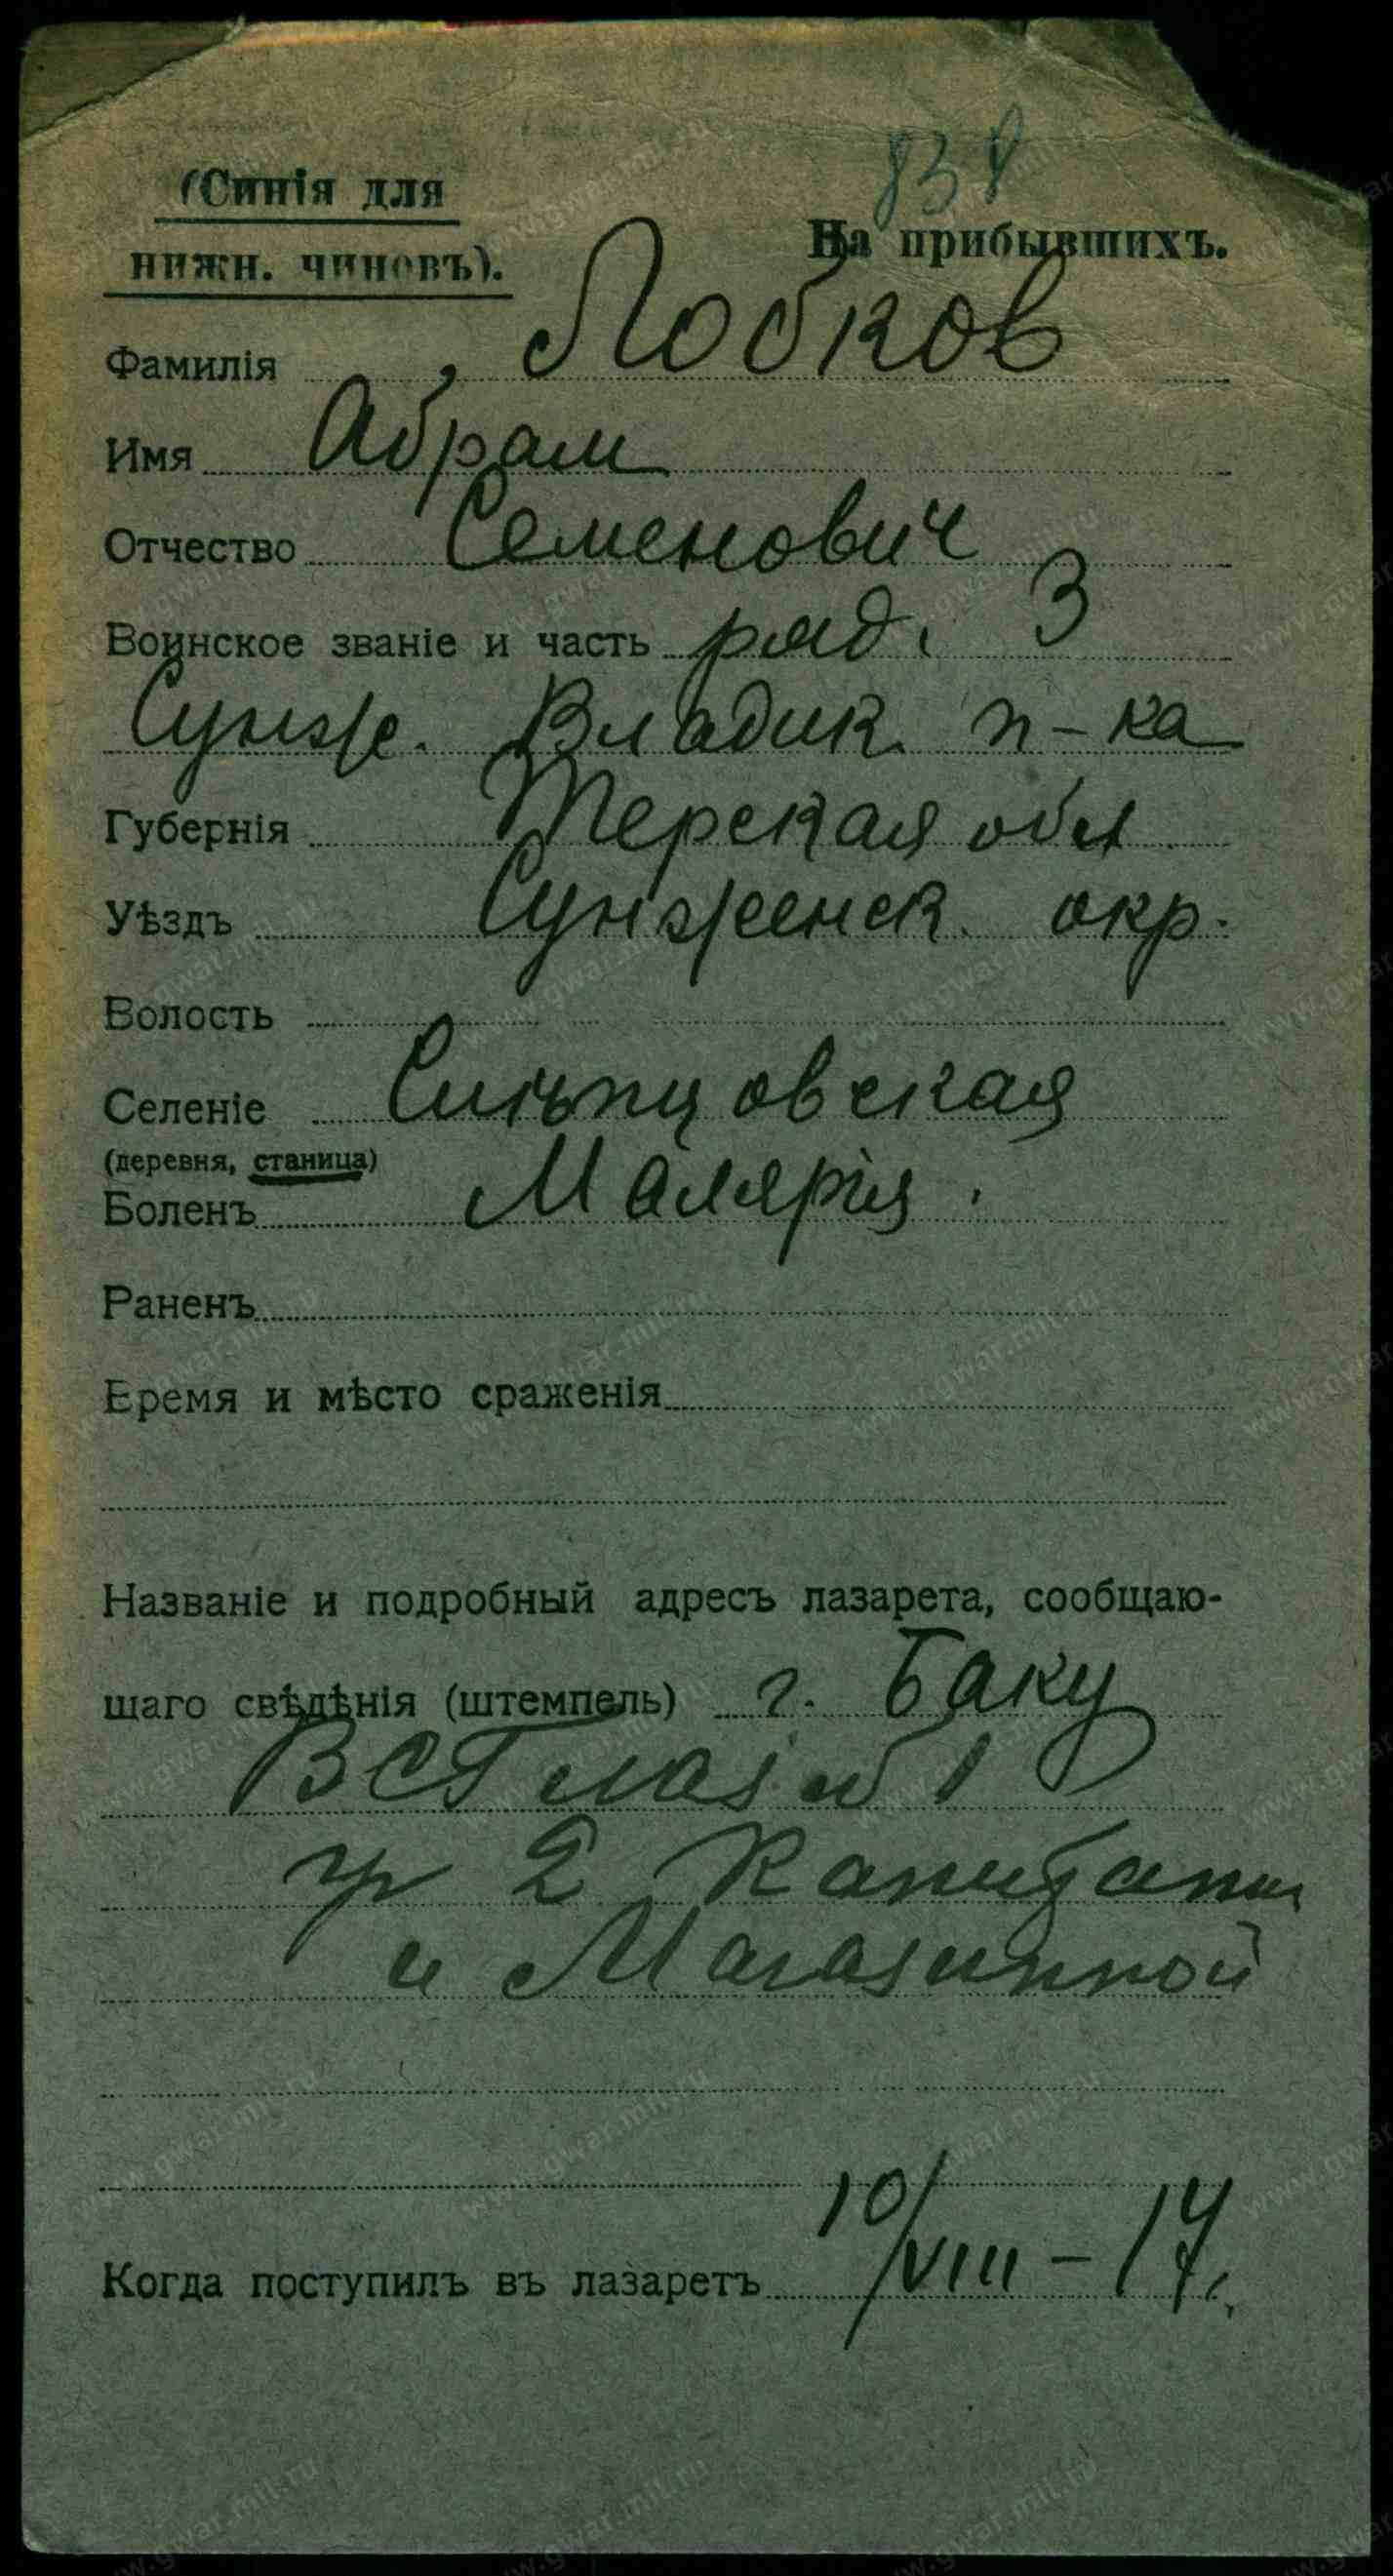 838
(Синія для
нижн. чиновъ).
На прибывшихъ.
Фамилія Лобков
Имя Абрам
Отчество Семенович
Воинское званіе и часть ряд. 3
Сунж. Владик. п-ка
Губернія Терская обл
Уѣздъ Сунженск. окр.
Волость
Селеніе Слѣпцовская
(деревня, станица)
Боленъ Малярія.
Раненъ
Время и мѣсто сраженія
Названіе и подробный адресъ лазарета, сообщаю-
щаго свѣдѣнія (штемпель) г. Баку
ВСГ лаз № 1
2
и Магазинной
Когда поступилъ въ лазаретъ 10/VIII-17г.
www.gwar.mil.ru